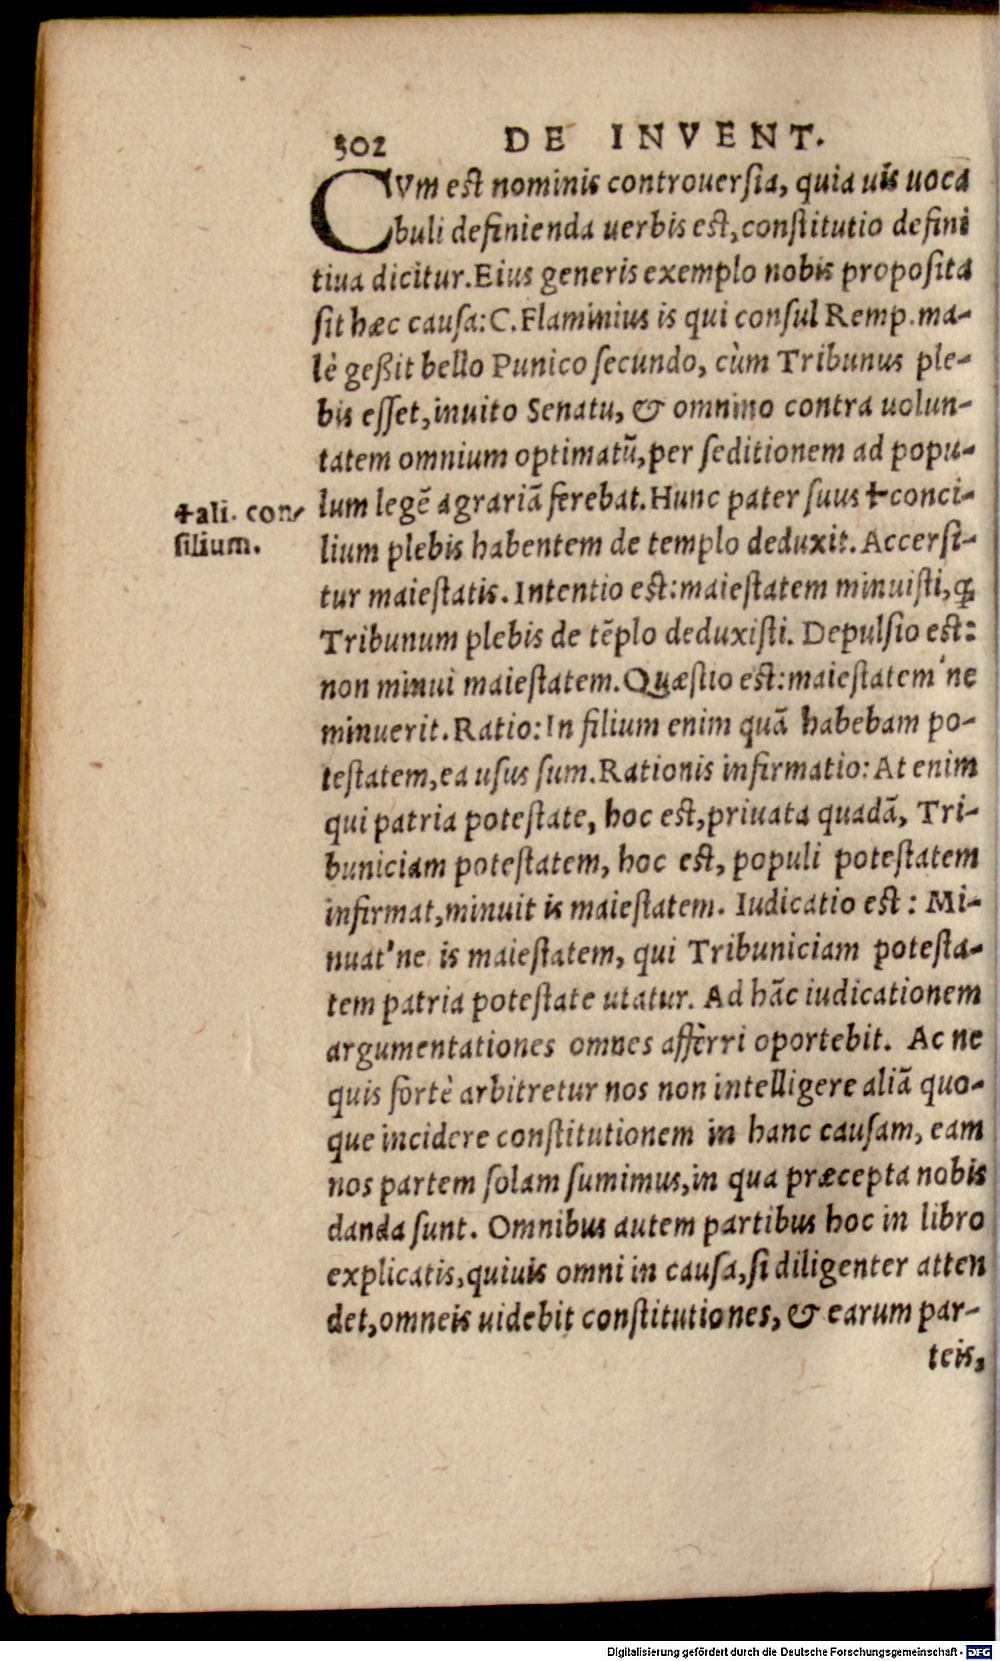 302 DE INVENT.
CVm est nominis controuersia, quia uis uoca
buli definienda uerbis est, constitutio defini
tiua dicitur. Eius generis exemplo nobis proposita
sit hæc causa: C. Flaminius is qui consul Remp. ma-
lè geßit bello Punico secundo, cùm Tribunus ple-
bis esset, inuito Senatu, & omnino contra uolun-
tatem omnium optimatũ, per seditionem ad popu-
lum legẽ agrariã ferebat. Hunc pater suus ✝conci-
✝ali. con-
silium.
lium plebis habentem de templo deduxit. Accersi-
tur maiestatis. Intentio est: maiestatem minuisti, ꝙ
Tribunum plebis de tẽplo deduxisti. Depulsio est:
non minui maiestatem. Quæstio est: maiestatem'ne
minuerit. Ratio: In filium enim quã habebam po-
testatem, ea usus sum. Rationis infirmatio: At enim
qui patria potestate, hoc est, priuata quadã, Tri-
buniciam potestatem, hoc est, populi potestatem
infirmat, minuit is maiestatem. Iudicatio est: Mi-
nuat'ne is maiestatem, qui Tribuniciam potesta-
tem patria potestate utatur. Ad hãc iudicationem
argumentationes omnes afferri oportebit. Ac ne
quis fortè arbitretur nos non intelligere aliã quo-
que incidere constitutionem in hanc causam, eam
nos partem solam sumimus, in qua præcepta nobis
danda sunt. Omnibus autem partibus hoc in libro
explicatis, quiuis omni in causa, si diligenter atten
det, omneis uidebit constitutiones, & earum par-
teis,
Digitalisierung gefördert durch die Deutsche Forschungsgemeinschaft - DFG